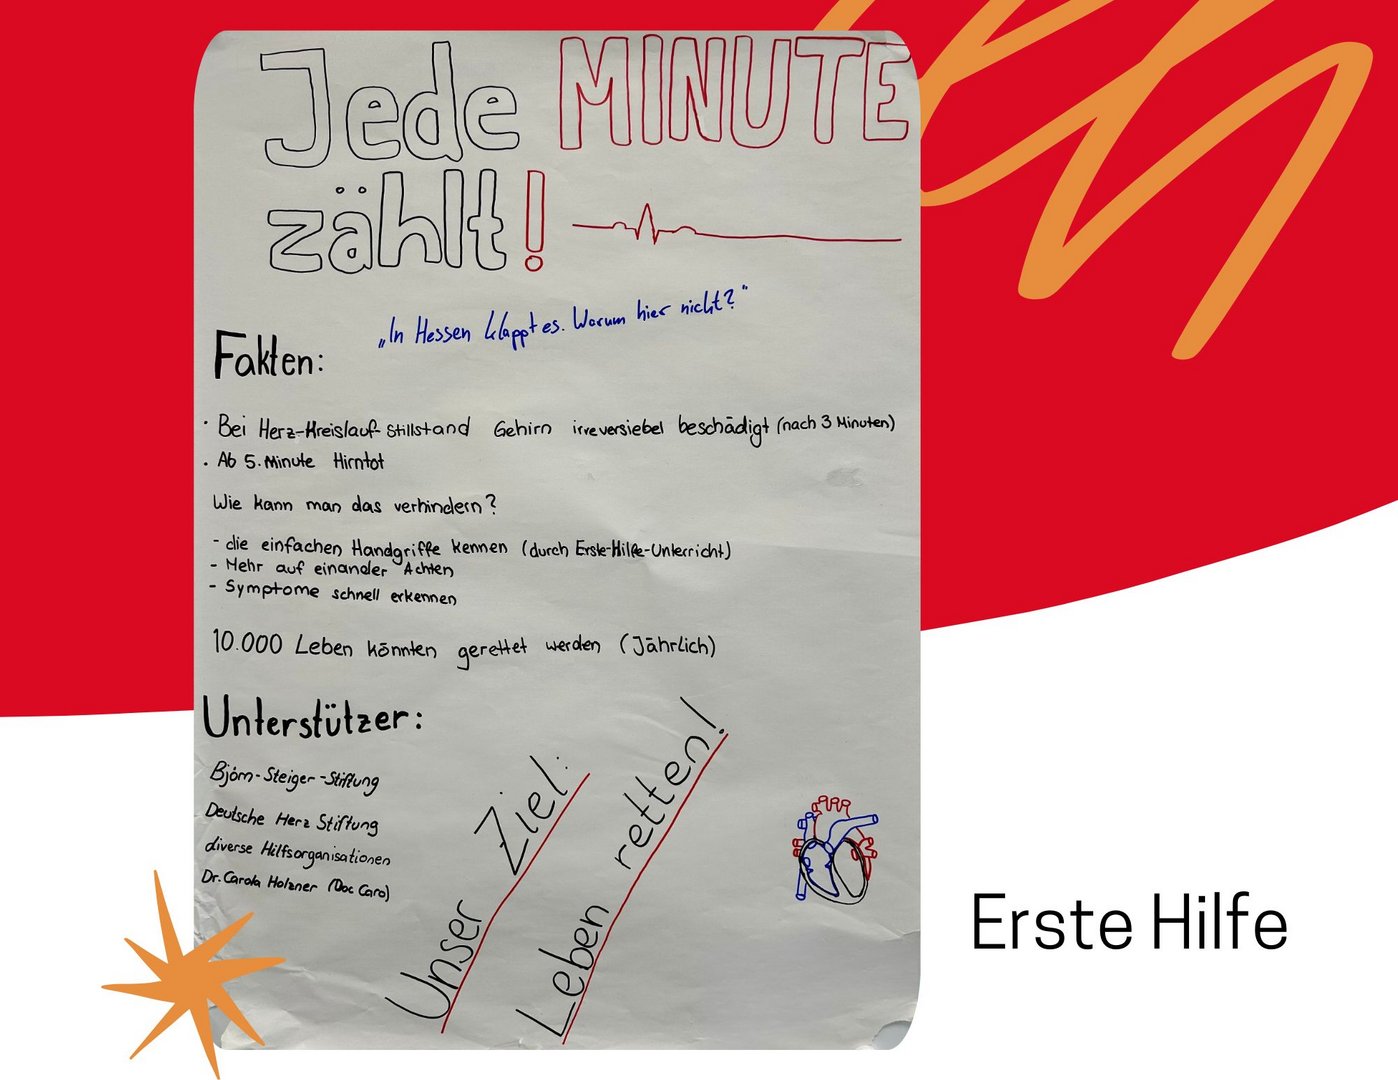 Jede MINUTE
zählt!
„In Hessen klappt es. Warum hier nicht?"
Fakten:
· Bei Herz-Kreislauf-Stillstand Gehirn irreversiebel beschädigt (nach 3 Minuten)
· Ab 5. Minute Hirntot
Wie kann man das verhindern?
- die einfachen Handgriffe kennen (durch Erste-Hilfe-Unterricht)
- Mehr auf einander Achten
- Symptome schnell erkennen
10.000 Leben könnten gerettet werden (Jährlich)
Unterstützer:
Björn-Steiger-Stiftung
Deutsche Herz Stiftung
diverse Hilfsorganisationen
Dr. Carola Holzner (Doc Caro)
Unser Ziel:
Leben retten!
Erste Hilfe